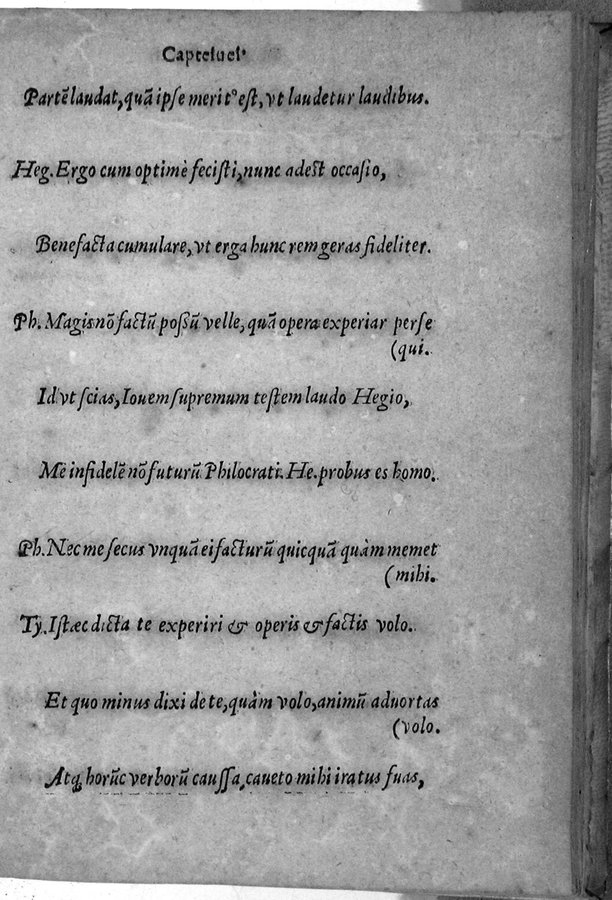 Capteiuei·
Partē laudat, quā ipse merit⁹ est, vt laudetur laudibus.
Heg. Ergo cum optimè fecisti, nunc adest occasio,
Benefacta cumulare, vt erga hunc rem geras fideliter.
Ph. Magis nō factū possū velle, quā opera experiar perse
(qui.
Id vt scias, Iouem supremum testem laudo Hegio,
Mē infidelē nō futurū Philocrati. He. probus es homo.
Ph. Nec me secus vnquā ei facturū quicquā quàm memet
(mihi.
Ty. Istæc dicta te experiri & operis & factis volo.
Et quo minus dixi de te, quàm volo, animū aduortas
(volo.
Atq; horūc verborū caussa, caueto mihi iratus fuas,